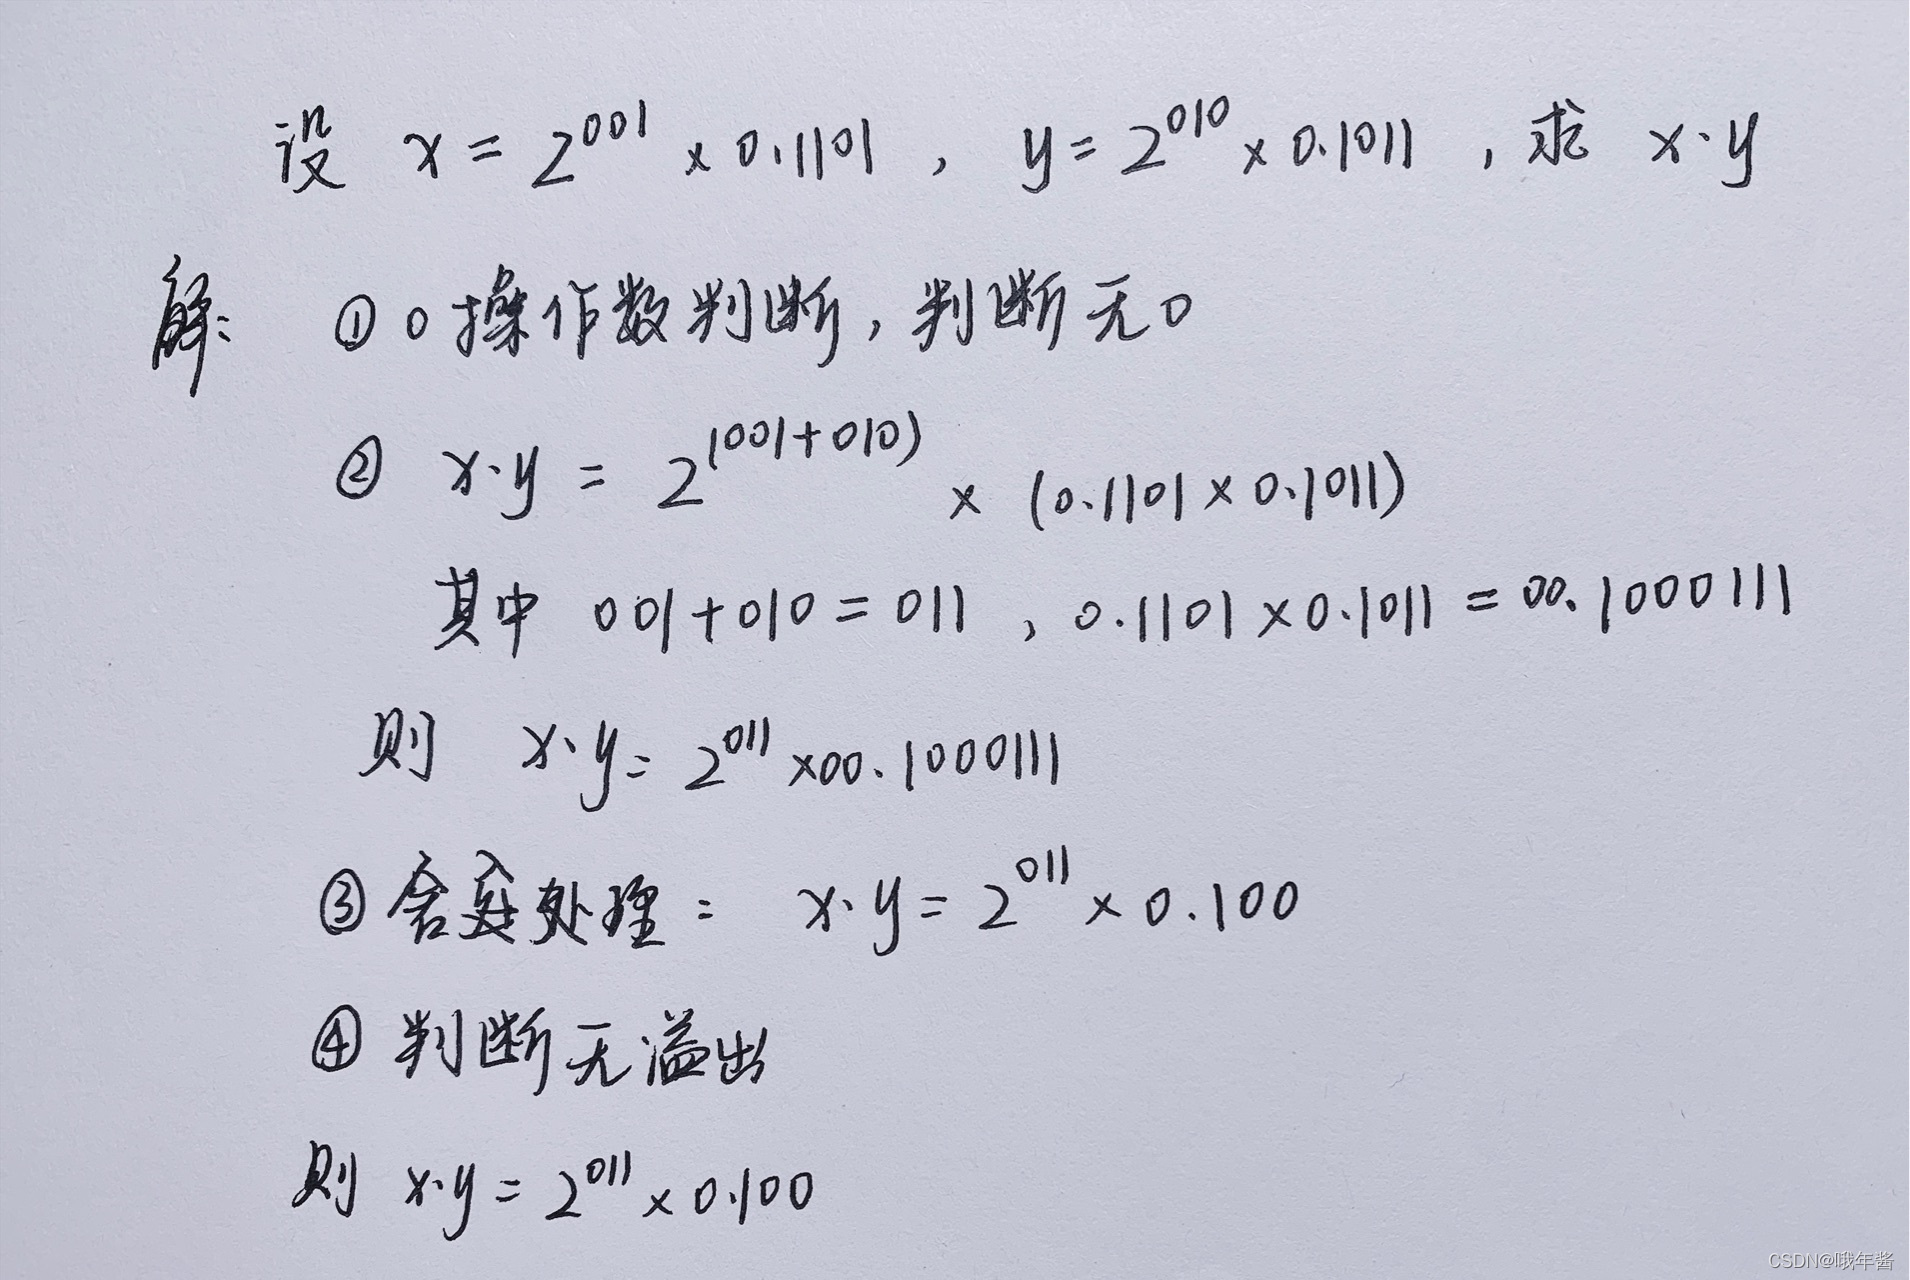 设 x = 2^001 × 0.1101 , y = 2^010 × 0.1011 , 求 x·y
解: ① 0操作数判断, 判断无0
② x·y = 2^(001+010) × (0.1101 × 0.1011)
其中 001+010=011 , 0.1101×0.1011 = 00.1000111
则 x·y = 2^011 ×00.1000111
③ 舍入处理: x·y = 2^011 × 0.100
④ 判断无溢出
则 x·y = 2^011 × 0.100
CSDN@哦年酱